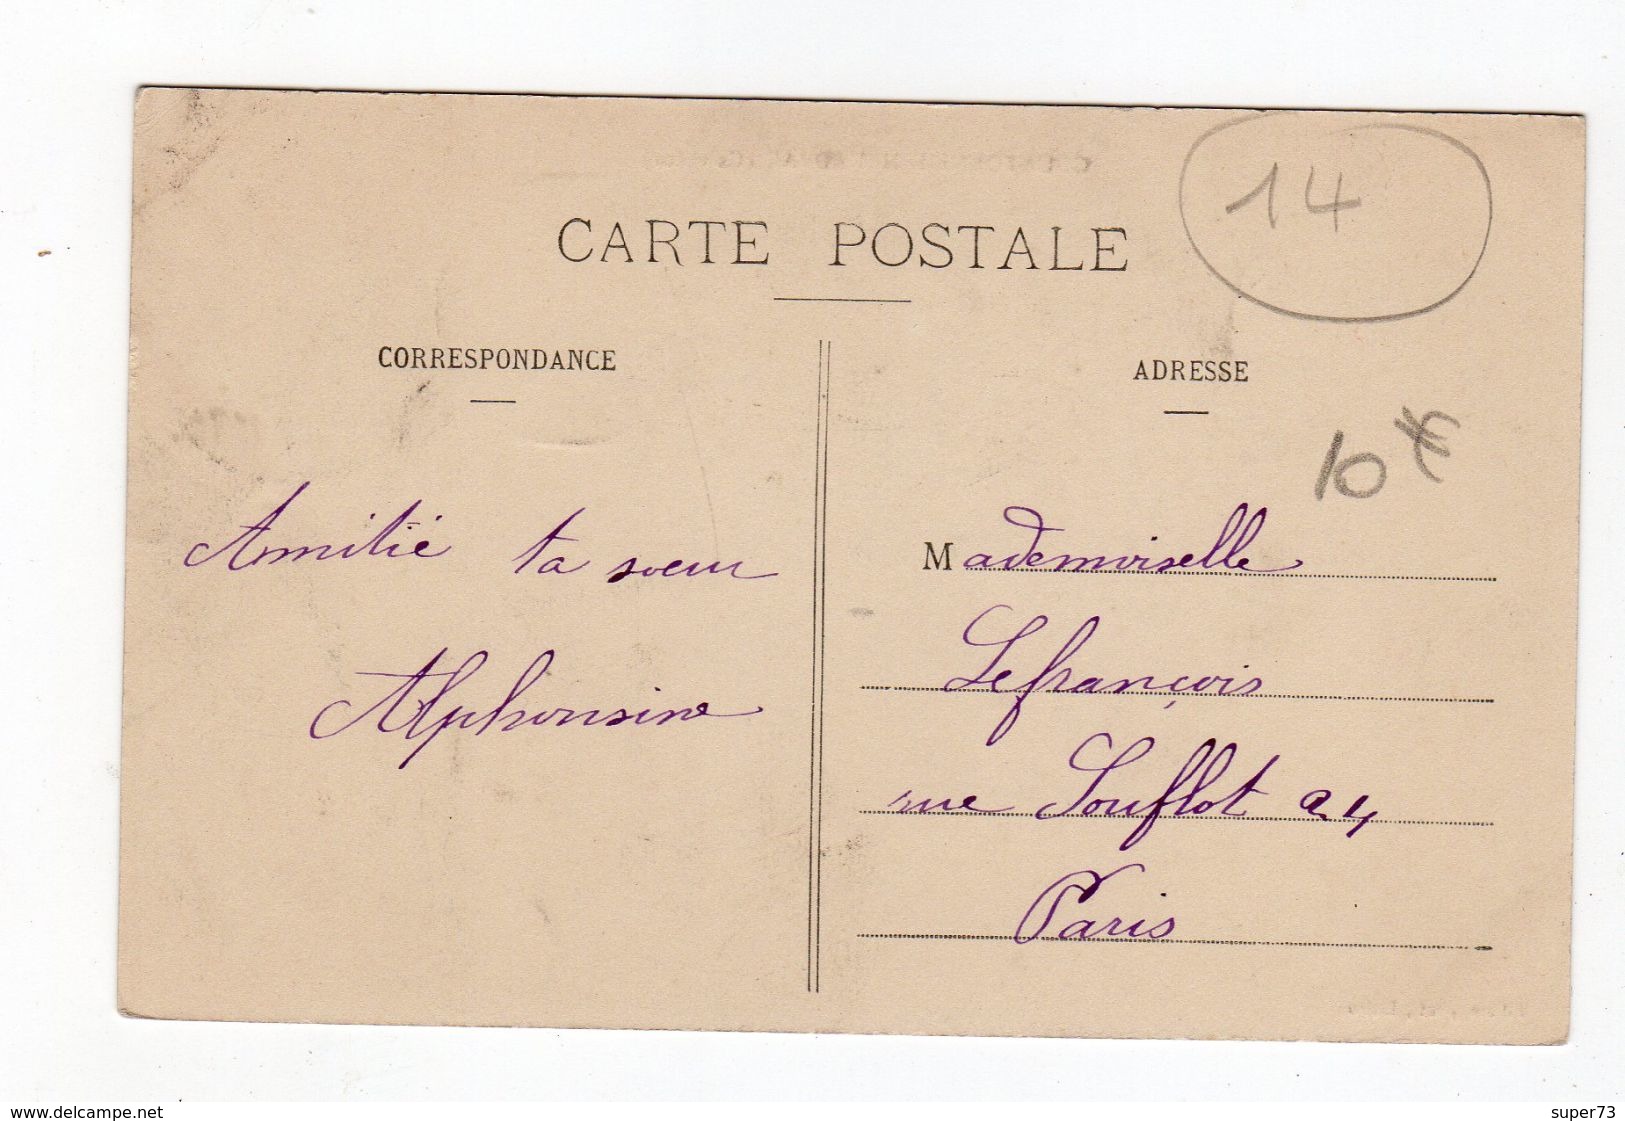 14
CARTE POSTALE
CORRESPONDANCE
ADRESSE
10
Amitié ta sœur
Alphonsine
Mademoiselle
Lefrançois
rue Soufflot 24
Paris
www.delcampe.net
super73